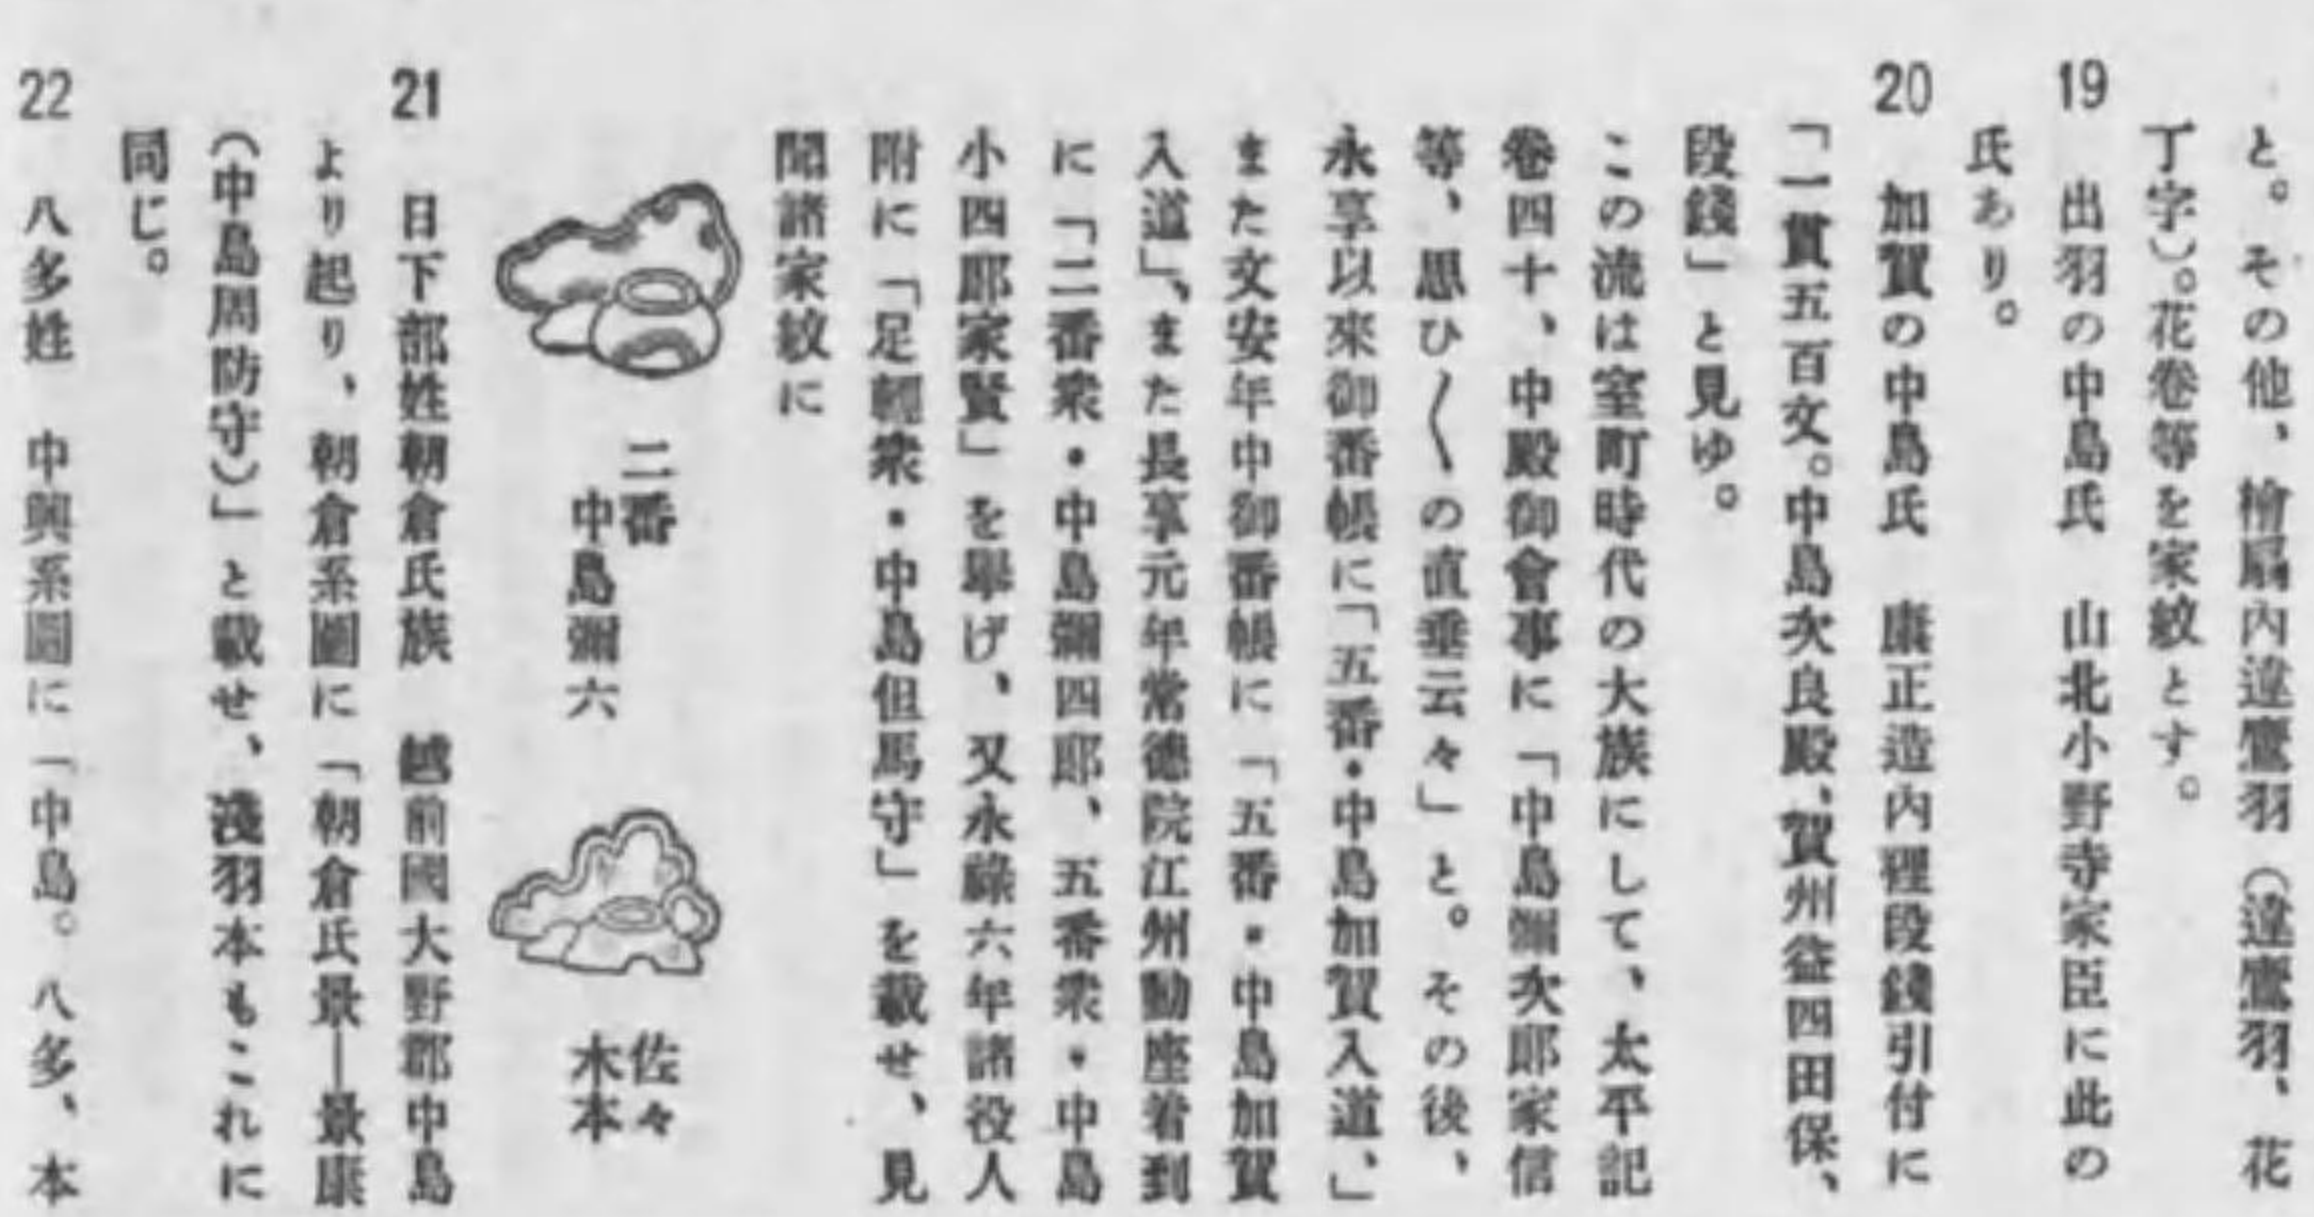 と。その他、檜扇內違鷹羽（違鷹羽、花
丁字）。花卷等を家紋とす。
19 出羽の中島氏 山北小野寺家臣に此の
氏あり。
20 加賀の中島氏 康正造內裡段錢引付に
「一貫五百文。中島次良殿、賀州益四田保、
段錢」と見ゆ。
この流は室町時代の大族にして、太平記
卷四十、中殿御會事に「中島彌次郎家信
等、思ひ〱の直垂云々」と。その後、
永享以來御番帳に「五番・中島加賀入道、」
また文安年中御番帳に「五番・中島加賀
入道」、また長享元年常德院江州動座着到
に「二番衆・中島彌四郎、五番衆・中島
小四郎家賢」を擧げ、又永祿六年諸役人
附に「足輕衆・中島但馬守」を載せ、見
聞諸家紋に
二番
中島彌六
佐々
木本
21 日下部姓朝倉氏族 越前國大野郡中島
より起り、朝倉系圖に「朝倉氏景―景康
（中島周防守）」と載せ、淺羽本もこれに
同じ。
22 八多姓 中興系圖に「中島。八多、本